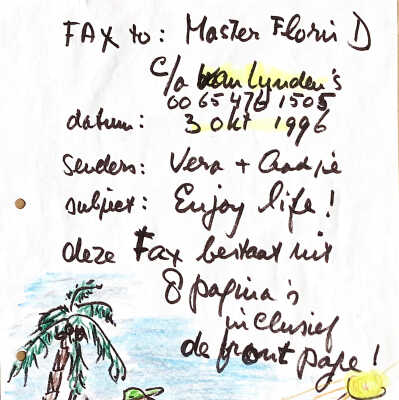 FAX to: Master Florin D
c/o van Lynden's
00 65 476 1505
datum: 3 okt 1996
senders: Vera +
subject: Enjoy life!
deze Fax bestaat uit
8 pagina's
inclusief
de front page!